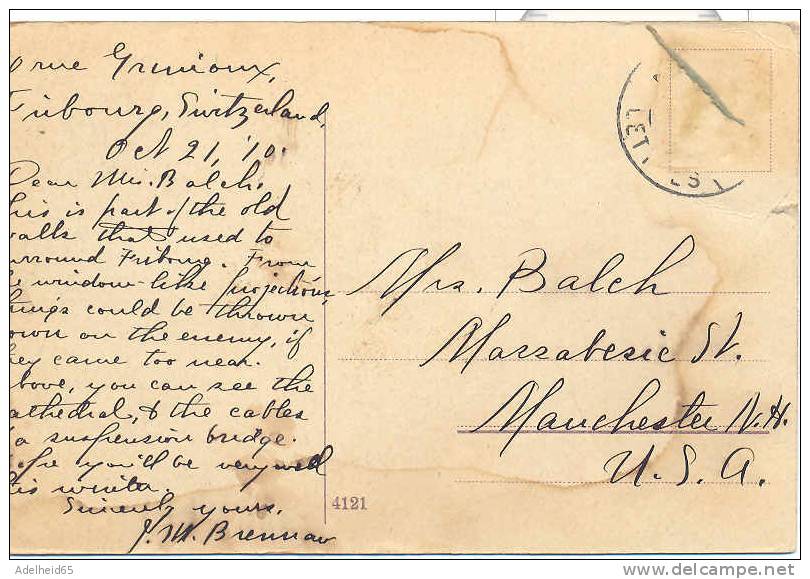 rue Grimoux,
Fribourg, Switzerland,
Oct 21, '10.
Dear Mrs. Balch,
his is part of the old
alls that used to
urround Fribourg. From
e window-like projections,
hings could be thrown
own on the enemy, if
hey came too near.
bove, you can see the
athedral, & the cables
a suspension bridge.
you'll be very well
his winter.
Sincerely yours,
J. M. Brennan
4121
Mrs. Balch
Massabesic St.
Manchester N.H.
U.S.A.
Adelheid65
delcampe.net